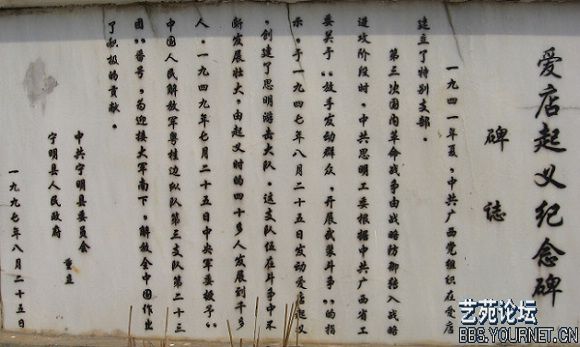 爱店起义纪念碑
碑志
一九四一年夏，中共广西党组织在爱店
建立了特别支部。
第三次国内革命战争由战略防御转入战略
进攻阶段时，中共思明工委根据中共广西省工
委关于“放手发动群众，开展武装斗争”的指
示，于一九四七年八月二十五日发动爱店起义
，创建了思明游击大队。这支队伍在斗争中不
断发展壮大，由起义时的四十多人发展到千多
人。一九四九年七月二十五日中央军委授予“
中国人民解放军粤桂边纵队第三支队第二十三
团”番号，为迎接大军南下，解放全中国作出
了积极的贡献。
中共宁明县委员会
宁明县人民政府
重立
一九九七年八月二十五日
艺苑论坛
BBS.YOURNET.CN